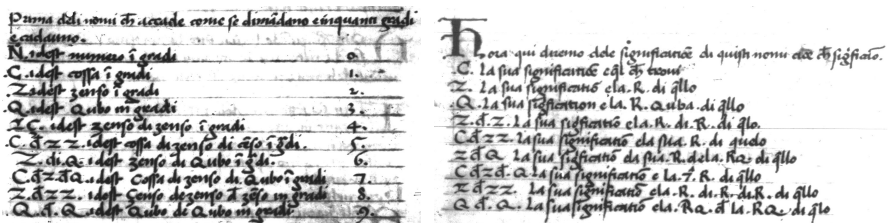 Prima deli nomi che accade come se dimãdano e in quanti gradi
e cadauno.
N. idest numero ĩ gradi 0.
C. idest cossa ĩ gradi 1.
Z. idest zenso ĩ gradi 2.
Q. idest Qubo in gradi 3.
ZC. idest zenso di zenso ĩ gradi 4.
C. d̃ ZZ. idest cossa di zenso di 5.
Z. di. Q. idest zenso di Qubo ĩ 6.
C d̃ Z d̃ Q. idest Cossa di zenso di Qubo ĩ gradi 7.
Z d̃ ZZ. idest Censo de zenso d̃ in gradi 8.
Q. d̃. Q. idest Qubo de Qubo in gradi 9.
Hora qui diremo dele significatiõe di quisti nomi
C. La sua significatiõe
Z. La sua significatiõ e la. R. di q̃llo
Q. La sua e la. R. Quba. di q̃llo
Z. d̃. Z. La sua e la. R. di. R. di q̃lo.
C d̃ Z Z. La sua significatiõ
Z d̃ Q. La sua dela. RQ di q̃llo
C d̃ Z d̃. Q La sua significatiõ e la. di q̃llo
Z d̃ Z Z. La sua significatiõ e la. R. di. R. di. R. di q̃llo
Q d̃. Q. La sua significatiõ e la. RQ d̃ la. RQ. di q̃lo